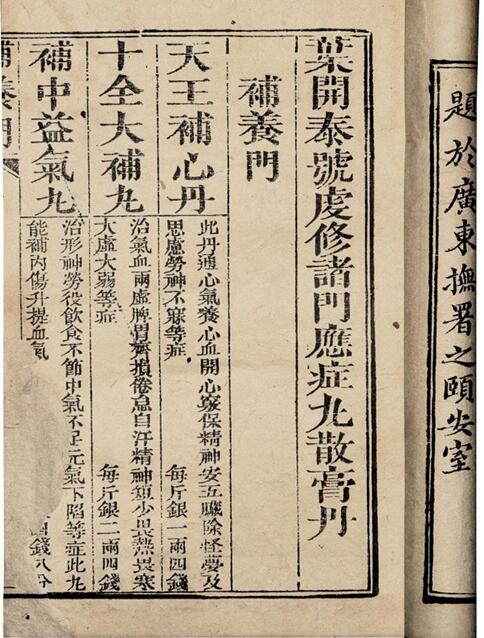 題於廣東撫署之頤安室
葉開泰號虔修諸門應症丸散膏丹
補養門
天王補心丹
此丹通心氣養心血開心竅保精神安五臟除怪夢及
思慮勞神不寐等症
每斤銀一兩四錢
十全大補丸
治氣血兩虛脾胃虧損倦怠自汗精神短少畏熱畏寒
大虛大弱等症
每斤銀二兩四錢
補中益氣丸
治形神勞役飲食不節中氣不足元氣下陷等症此丸
能補內傷升提血氣
四錢八分
補養門